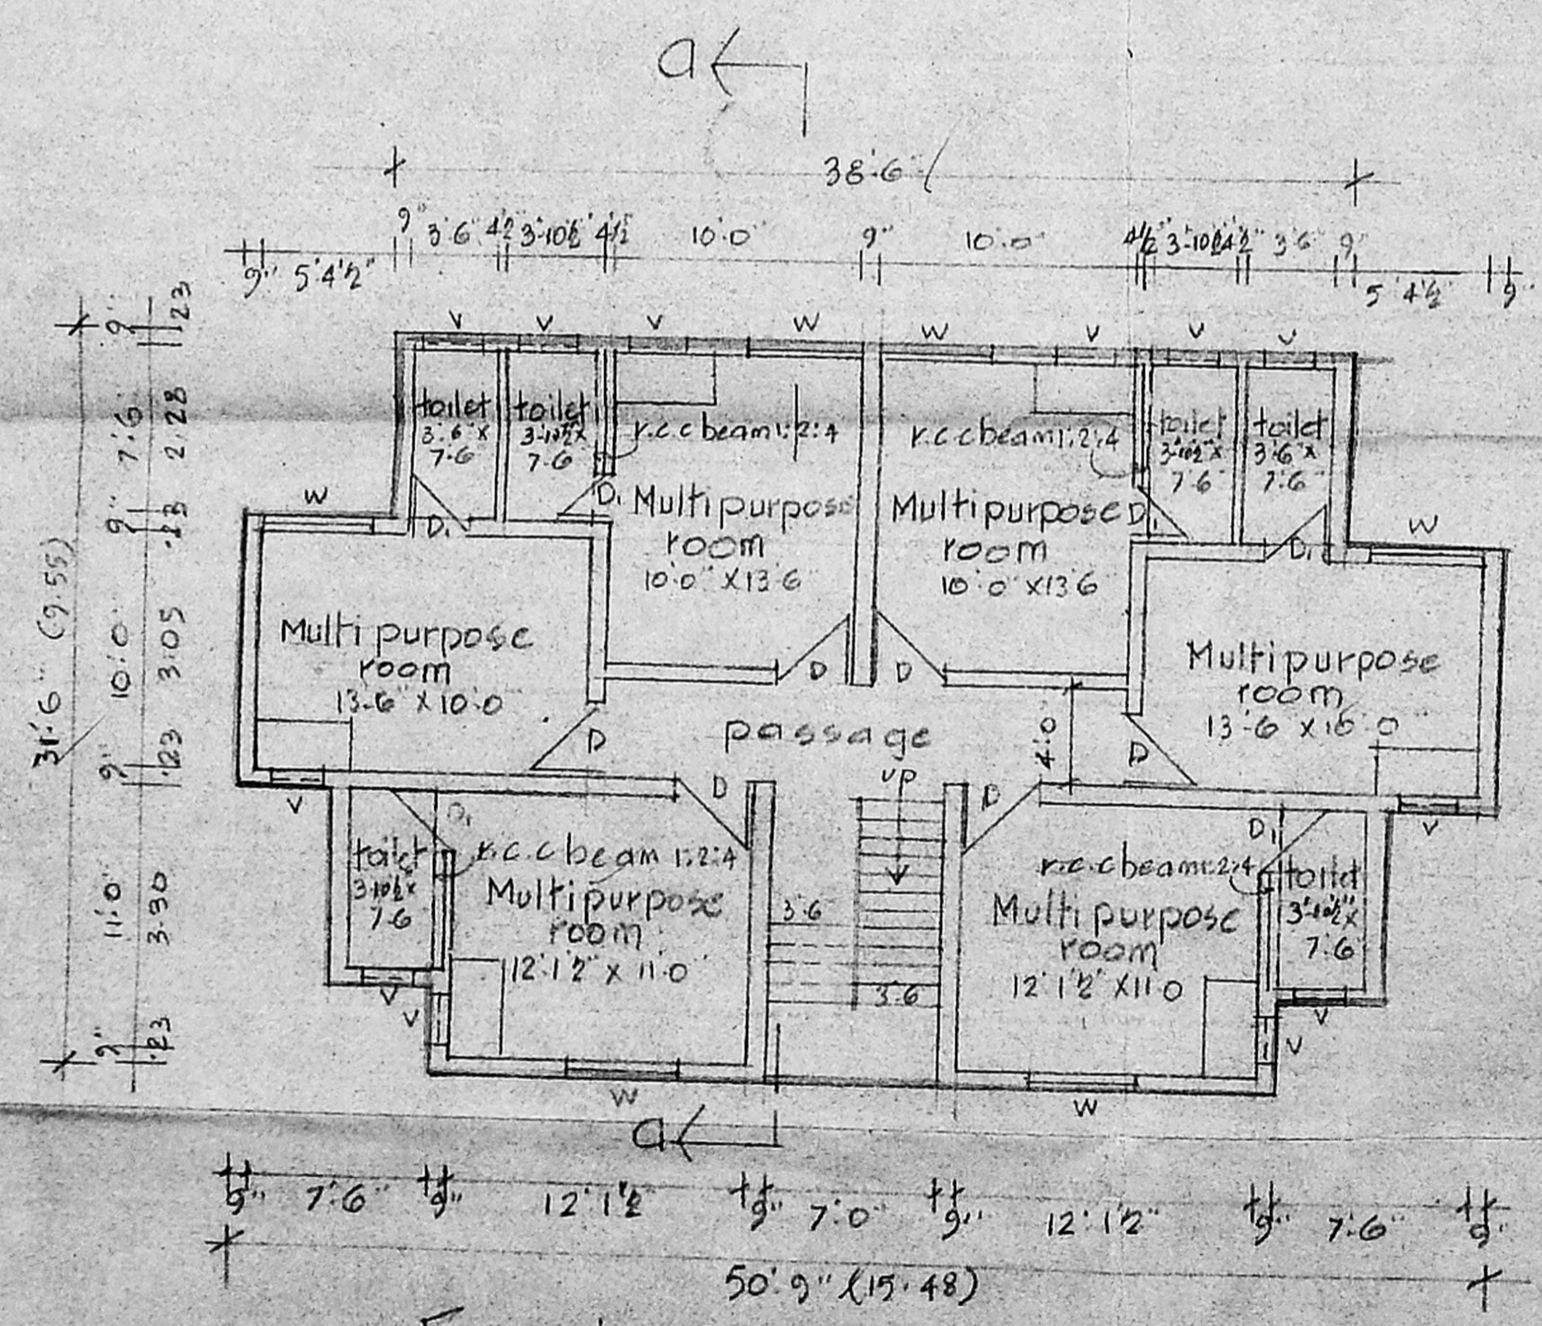 a
38'-6"
9" 3'6" 4½ 3'-10½" 4½ 10'0" 9" 10'0" 4½" 3'-10½ 4½" 3'6" 9"
9" 5'4½" 5'4½" 9"
9" 7'6" 9" 10'0" 9" 11'0" 9"
.23 2.28 .23 3.05 .23 3.30 .23
31'-6" (9.55)
V V V W W V V V
toilet
3'-6"x
7'6"
toilet
3'-10½"x
7'6"
r.c.c beam 1:2:4
r.c.c beam 1:2:4
toilet
3'-10½"x
7'6"
toilet
3'-6"x
7'6"
W
D1
D1
Multipurpose
room
10'0" x13'6"
Multipurpose
room
10'0" x13'6"
D1
D1
W
Multipurpose
room
13'-6" x 10'-0"
D
D
D
passage
4'-0"
D
Multipurpose
room
13'-6" x 10'0"
V
D
up
D
V
D1
toilet
3'-10½"x
7'6"
r.c.c beam 1:2:4
Multipurpose
room
12'1½" x 11'0"
3'6"
3'6"
D1
r.c.c beam 1:2:4
Multipurpose
room
12'1½" x11'0
toilet
3'-10½"x
7'6"
V
V
V
V
W
W
a
9" 7'6" 9" 12'1½" 9" 7'0" 9" 12'1½" 9" 7'6" 9"
50'9" (15.48)